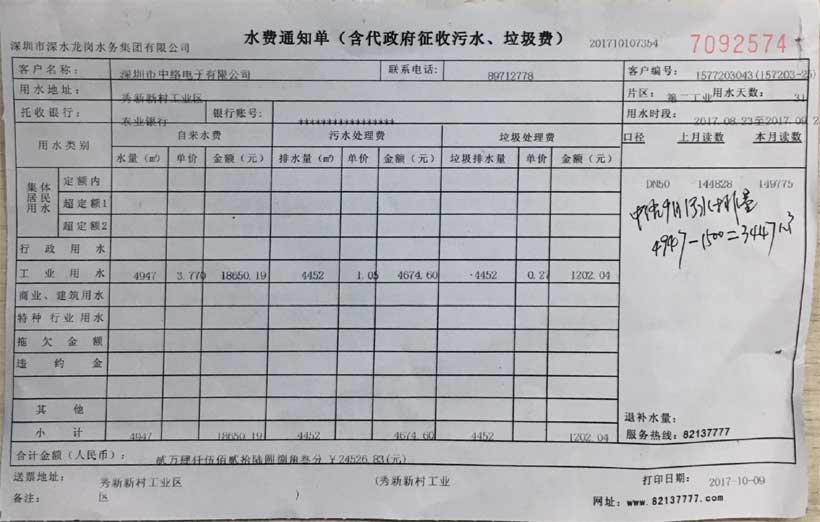 深圳市深水龙岗水务集团有限公司 水费通知单（含代政府征收污水、垃圾费） 201710107354 7092574
客户名称： 深圳市中络电子有限公司 联系电话： 89712778 客户编号： 1577203043(157203-25)
用水地址： 秀新新村工业区 片区： 第二工业 用水天数： 31
托收银行： 农业银行 银行账号： ***************** 用水时段： 2017.08.23至2017.09.2
用水类别 自来水费 污水处理费 垃圾处理费 口径 上月读数 本月读数
水量（㎥） 单价 金额（元） 排水量（㎥） 单价 金额（元） 垃圾排水量 单价 金额（元）
集体居民用水 定额内 DN50 144828 149775
超定额1
超定额2
4947-1500=3447㎥
行政用水
工业用水 4947 3.770 18650.19 4452 1.05 4674.60 4452 0.27 1202.04
商业、建筑用水
特种行业用水
拖欠金额
违约金
其他 退补水量：
小计 4947 18650.19 4452 4674.60 4452 1202.04 服务热线：82137777
合计金额（人民币）： 贰万肆仟伍佰贰拾陆圆捌角叁分 ￥24526.83(元)
送票地址： 秀新新村工业区 (秀新新村工业区) 打印日期： 2017-10-09
备注： 网址：www.82137777.com